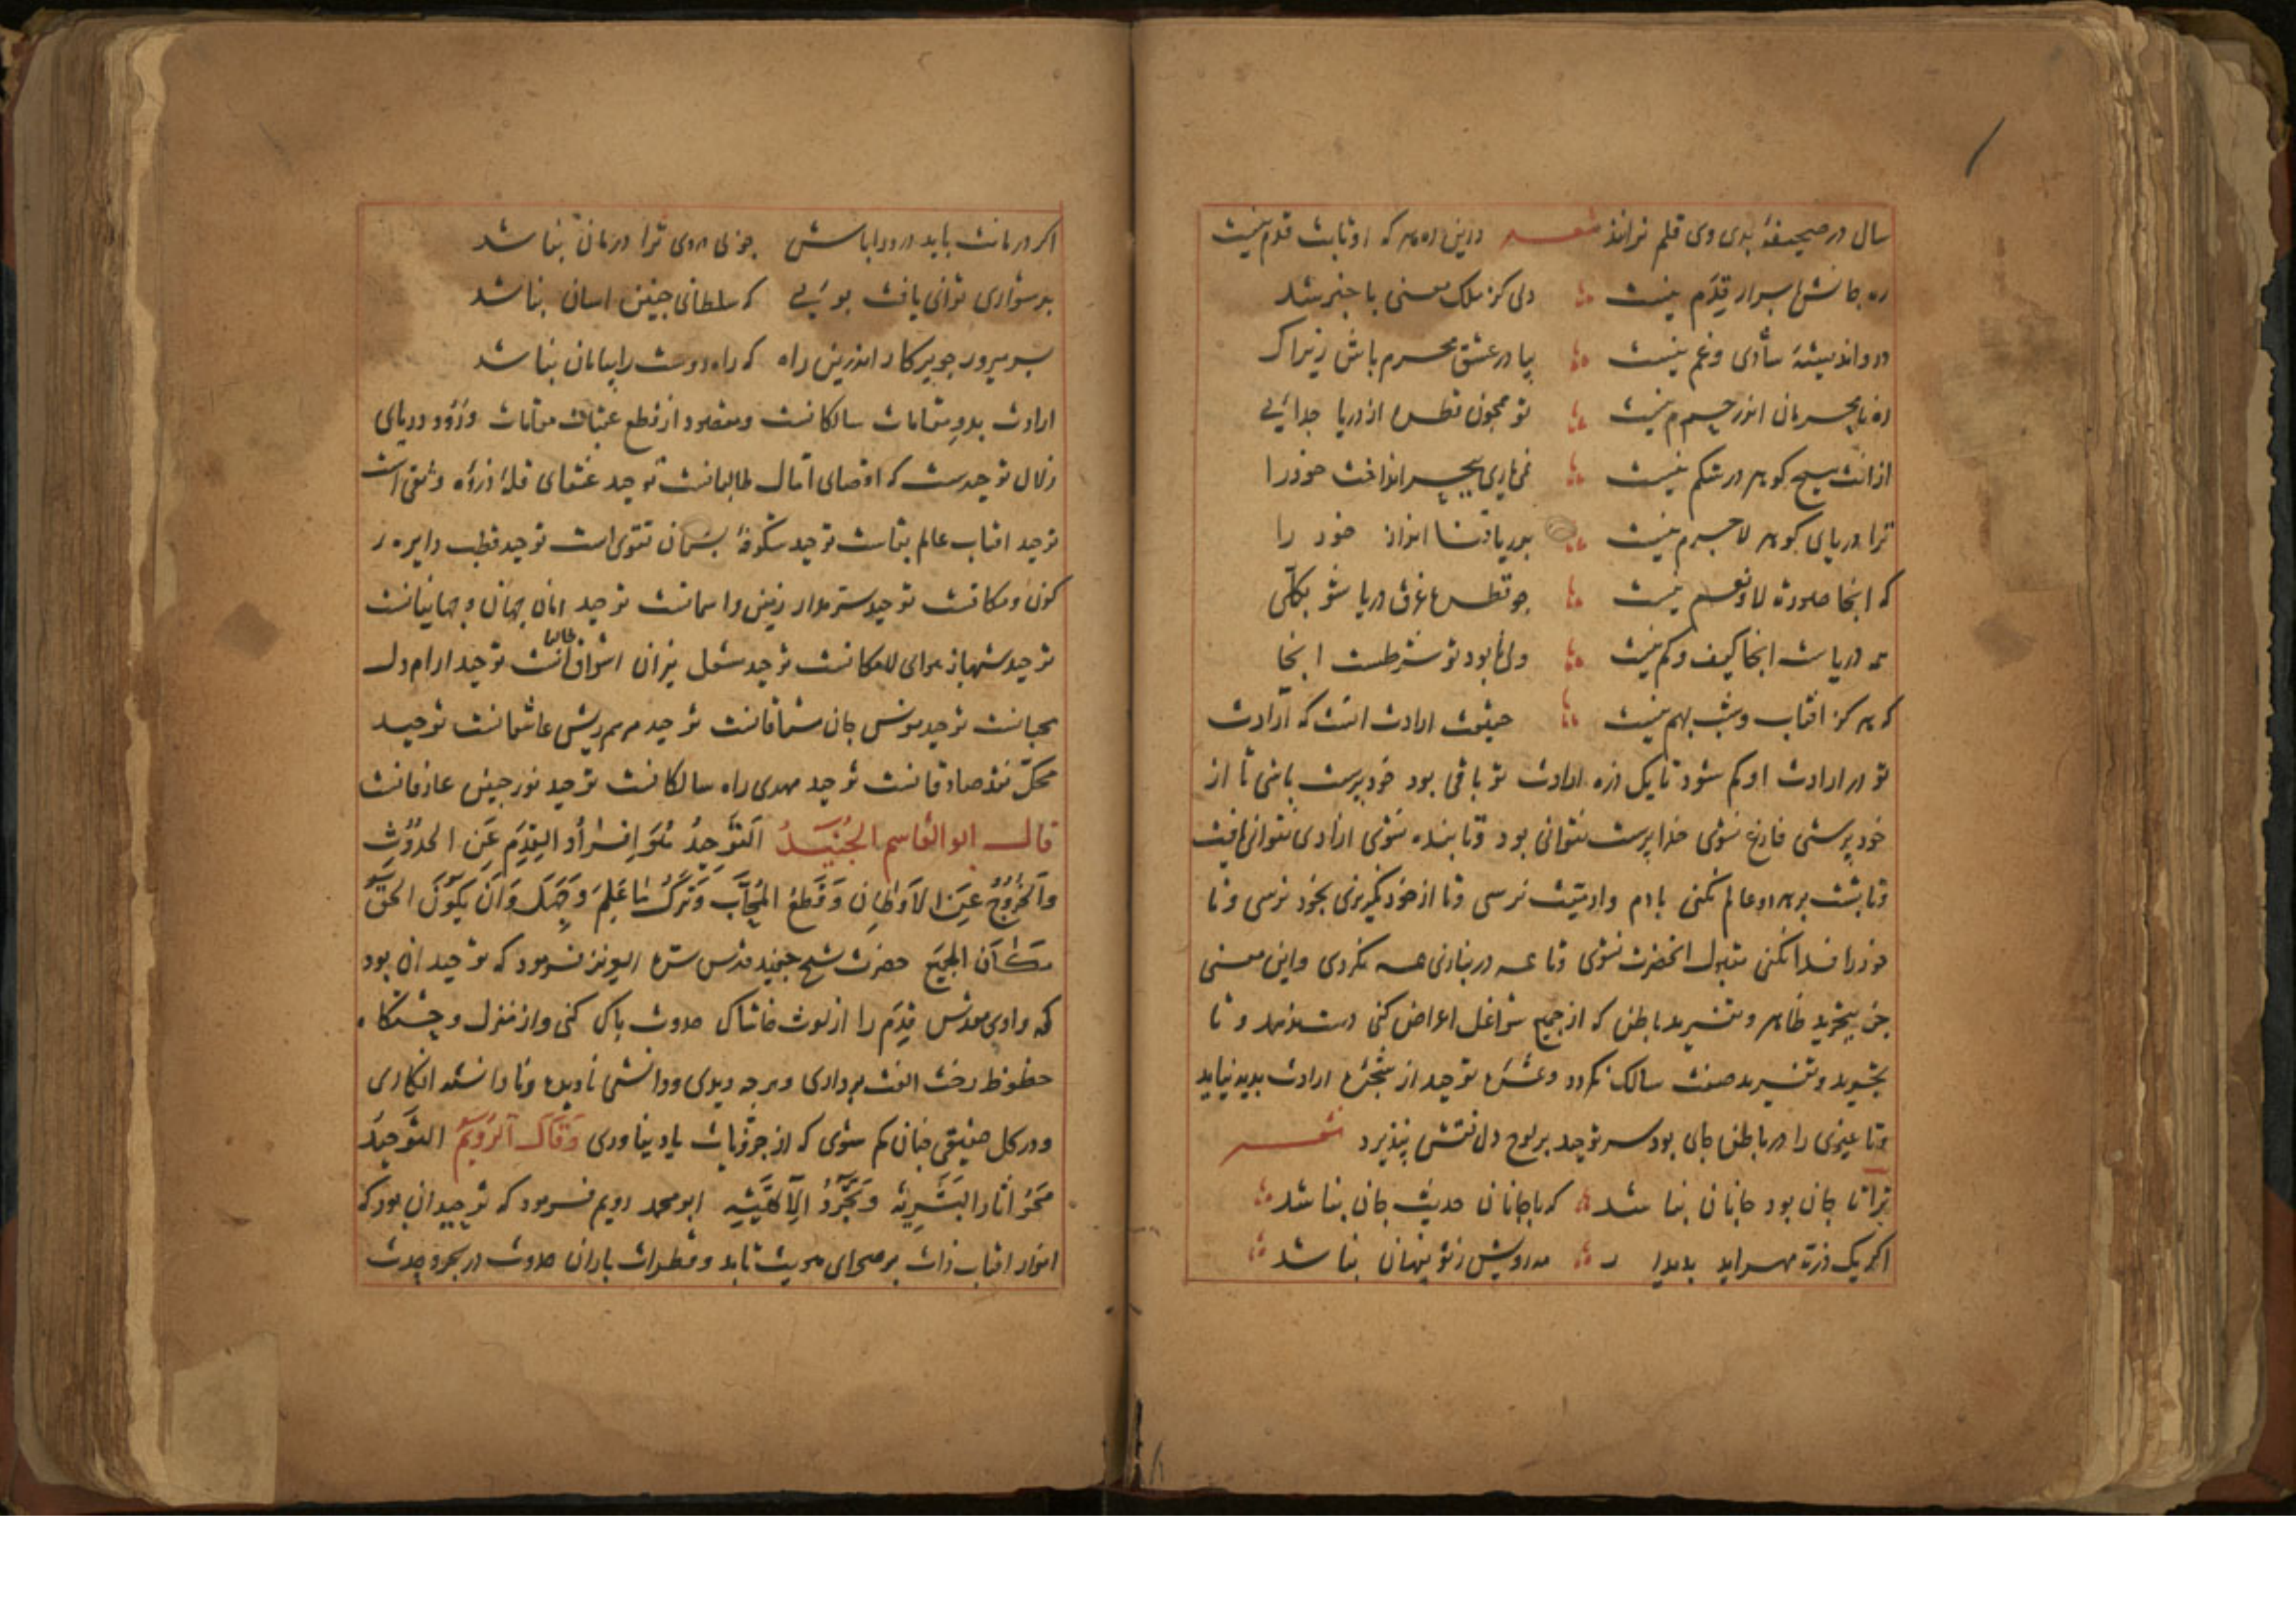 سال در صحیفهٔ بدی وی قلم نراند شعر درین ره هر که او ثابت قدم نیست
ره جانش باسرار قدم نیست دلی کز ملک معنی با خبر شد
در و اندیشهٔ شادی و غم نیست بیا در عشق محرم باش زیراک
ره نامحرمان اندر حرم نیست تو همچون قطره از دریا جدائی
ازانت هیچ کوهر در شکم نیست نمی‌یاری ببحر انداخت خود را
ترا دریای کوهر لاجرم نیست بدریا فنا انداز خود را
که انجا صورت لا و نعم نیست چو قطره غرق دریا شو بکلی
همه دریاست انجا کیف و کم نیست ولی نابود تو شرطست انجا
که هرکز افتاب و شب بهم نیست حقیقت ارادت انست که ارادت
تو در ارادت او کم شود تا یک ذره ارادت تو باقی بود خود پرست باشی تا از
خود پرستی فارغ نشوی خدا پرست نتوانی بود و تا بنده نشوی ازادی نتوانی یافت
و تا پشت بر هر دو عالم نکنی بادم وادمیت نرسی و تا از خود نکریزی بخود نرسی و تا
خود را فدا نکنی مقبول انحضرت نشوی و تا همه در نبازی همه نکردی و این معنی
جز بتجرید ظاهر و تفرید باطن که از جمیع شواغل اعراض کنی دست ندهد و تا
تجرید و تفرید صفت سالک نکردد و ثمره توحید از شجره ارادت پدید نیاید
و تا غیری را در باطن جای بود سر توحید بر لوح دل نقش نپذیرد شعر
ترا تا جان بود جانان نباشد که با جانان حدیث جان نباشد
اکر یک ذره مهر اید پدیدار مه رویش ز تو پنهان نباشد
اکر درمانت باید درد را باش چو بی دردی ترا درمان نباشد
بدشواری توانی یافت بوئی که سلطانی چنین اسان نباشد
بسر میرو چو پرکار اندرین راه که راه دوست را پایان نباشد
ارادت بدو مقامات سالکانست و مقصود از قطع عقبات مقامات ورود دریای
زلال توحیدست که اقصای امال طالبانست توحید عنقای قلهٔ ذروه وثقی است
توحید افتاب عالم بقاست توحید شکوفهٔ بستان تقوی است توحید قطب دایره
کون و مکانست توحید ستر مدار زمین و اسمانست توحید امان جهان و جهانیانست
توحید شهباز هوای لامکانست توحید شعل نیران اشواق طالبانست توحید ارام دل
محبانست توحید مونس جان مشتاقانست توحید مرهم ریش عاشقانست توحید
محک نقد صادقانست توحید مهدی راه سالکانست توحید نور جبین عارفانست
قال ابوالقاسم الجُنَید اَلتَّوحِیدُ هُوَ اِفرادُ القِدَمِ عَنِ الحُدُوثِ
وَالخُرُوجُ عَنِ الاَوطانِ وَقَطعُ المَحَابِّ وَتَرکُ مَا عَلِمَ وَجَهِلَ وَاَن یَکُونَ الحَقُّ
مَکَانَ الجَمِیعِ حضرت شیخ جنید قدس سره العزیز فرمود که توحید ان بود
که وادی مقدس قِدَم را از لوث خاشاک حدوث پاک کنی و از منزل وحشتکاه
حظوظ رخت الفت برداری و هرچه دیدی و دانستی نادیده و نادانسته انکاری
و در کل حقیقی چنان کم شوی که از جزویات یاد نیاوری وَقَالَ اَلرُّوَیم التَّوحِیدُ
مَحوُ اثار البَشَرِیَّةِ وَتَجَرُّدُ الاِلٰهِیَّةِ ابو محمد رویم فرمود که توحید ان بود که
انوار افتاب ذات بر صحرای هویت تابد و قطرات باران حدوث در بحر وحدت